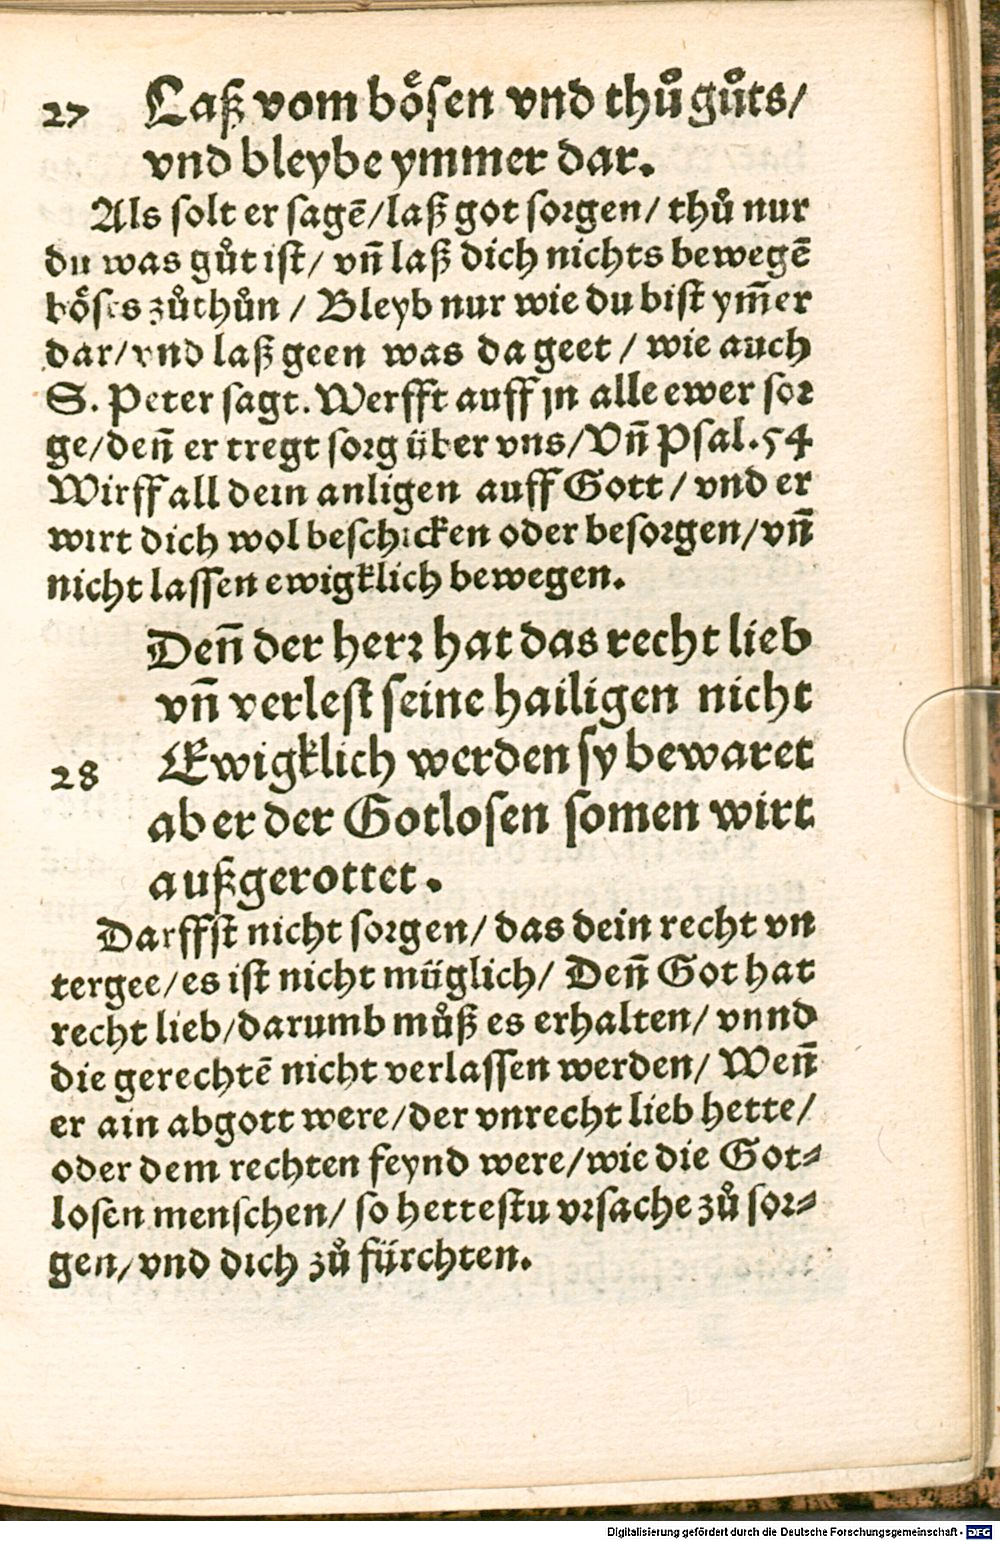 27 Laß vom boͤsen vnd thuͦ guͦts/
vnd bleybe ymmer dar.
Als solt er sagē/laß got sorgen/ thuͦ nur
du was guͦt ist/ vn̄ laß dich nichts bewegē
boͤses zuͦthuͦn / Bleyb nur wie du bist ym̄er
dar/vnd laß geen was da geet / wie auch
S. Peter sagt. Werfft auff jn alle ewer sor
ge/den̄ er tregt sorg über vns/Vn̄ Psal.54
Wirff all dein anligen auff Gott / vnd er
wirt dich wol beschicken oder besorgen/vn̄
nicht lassen ewigklich bewegen.
Den̄ der herr hat das recht lieb
vn̄ verlest seine hailigen nicht
28 Ewigklich werden sy bewaret
aber der Gotlosen somen wirt
außgerottet.
Darffst nicht sorgen/ das dein recht vn
tergee/es ist nicht müglich/ Den̄ Got hat
recht lieb/darumb muͦß es erhalten/ vnnd
die gerechtē nicht verlassen werden/ Wen̄
er ain abgott were/der vnrecht lieb hette/
oder dem rechten feynd were/wie die Got⸗
losen menschen/ so hettestu vrsache zuͦ sor⸗
gen/vnd dich zuͦ fürchten.
Digitalisierung gefördert durch die Deutsche Forschungsgemeinschaft - DFG